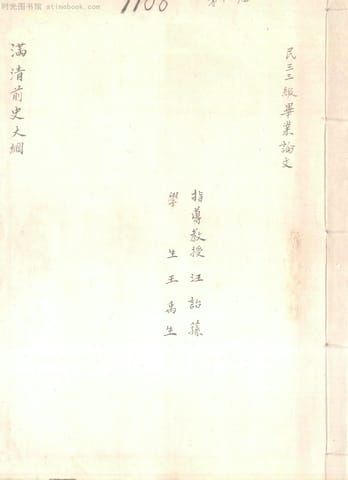 时光图书馆 · atimebook.com
1166
民三三級畢業論文
指導教授汪詒蓀
學生王禹生
滿清前史大綱